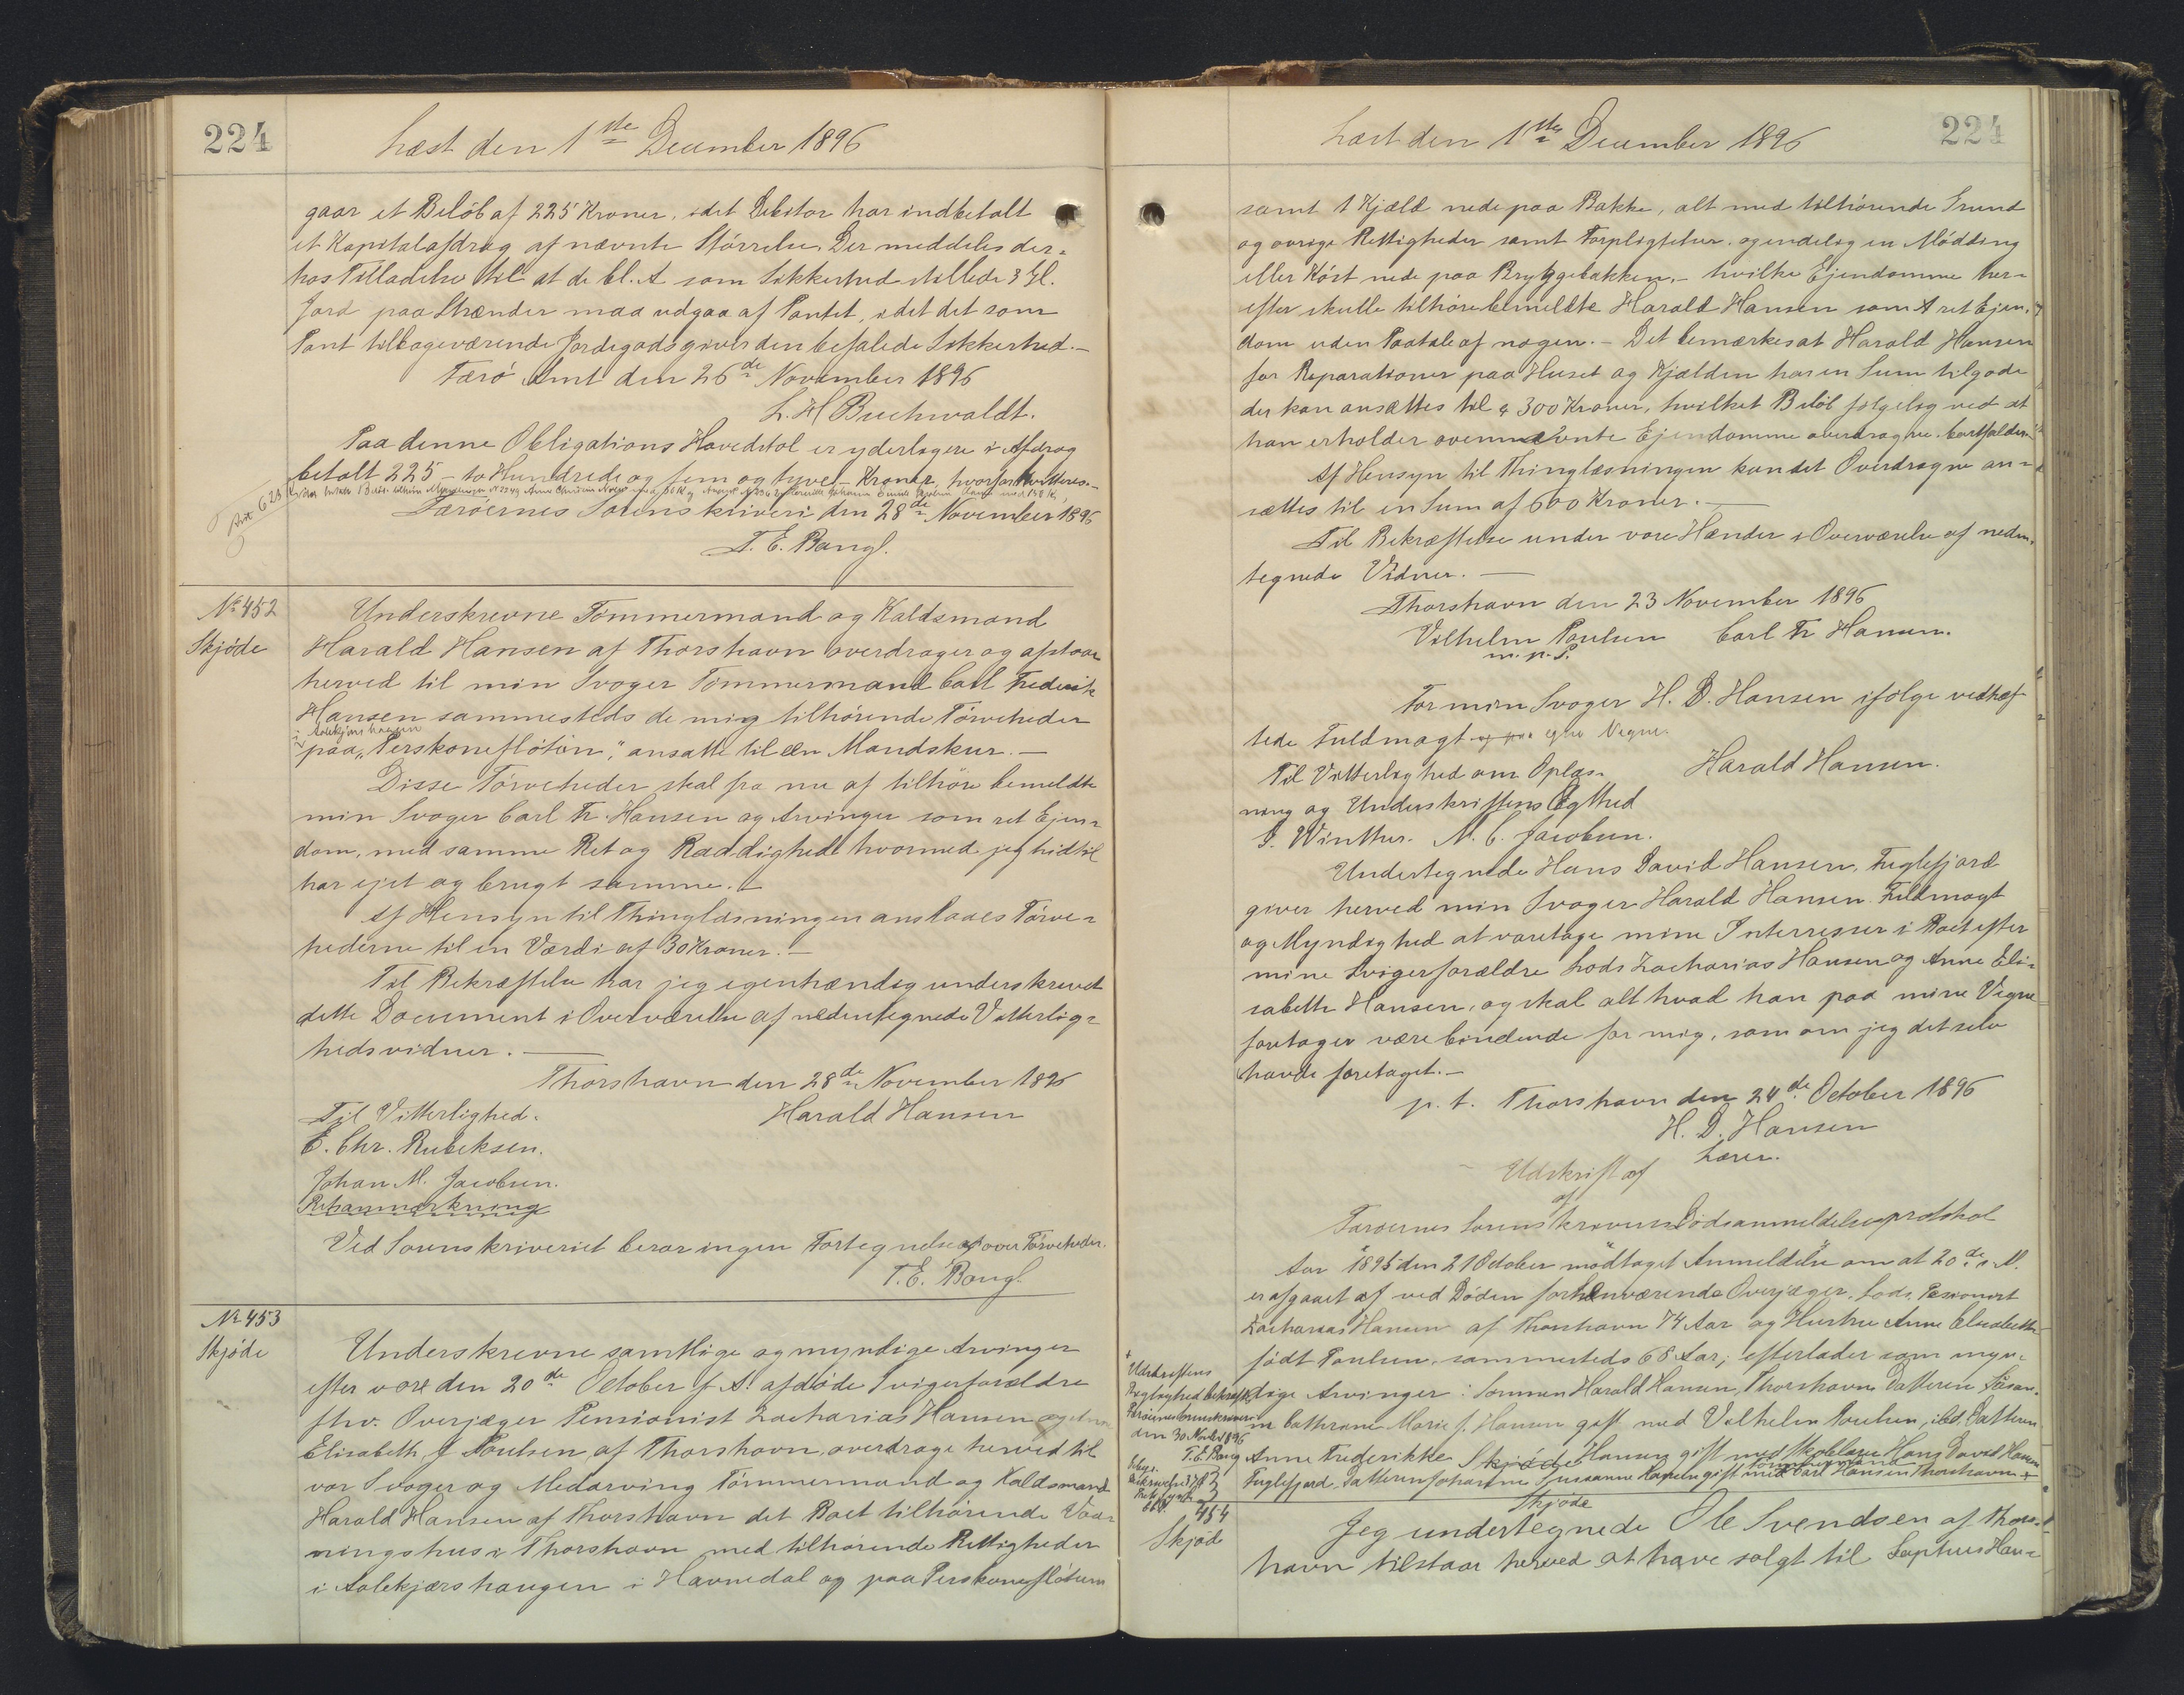 224
Læst den 1ste December 1896
gaar et Beløb af 225 Kroner, idet Debitor har indbetalt
et Kapitalafdrag af nævnte Størrelse. Der meddeles der-
hos Tilladelse til at de bl. A som Sikkerhed stillede 3 Gl.
Jord paa Strænder maa udgaa af Pantet, idet det som
Pant tilbageværende Jordegods giver den befalede Sikkerhed.-
Færø Amt den 26de November 1896
L. H Buchwaldt.
Paa denne Obligations Hovedstol er yderligere i Afdrag
betalt 225 - to Hundrede og fem og tyve - Kroner, hvorfor kvitteres.-
Færøernes Sorenskriveri den 28de November 1896
T. E. Bang.
No 452
Skjøde
Underskrevne Tømmermand og Kaldsmand
Harald Hansen af Thorshavn overdrager og afstaar
herved til min Svoger Tømmermand Carl Frederik
Hansen sammesteds de mig tilhørende Tørveheder
i Aalekjærshaugen
paa "Perskoneflötin," ansatte til een Mandskur.-
Disse Tørveheder skal fra nu af tilhøre bemeldte
min Svoger Carl Fr. Hansen og Arvinger som ret Ejen-
dom, med samme Ret og Raadighed hvormed jeg hidtil
har ejet og brugt samme.-
Af Hensyn til Thinglæsningen anslaaes Tørve-
hederne til en Værdi af 30 Kroner.-
Til Bekræftelse har jeg egenhændig underskrevet
dette Document i Overværelse af nedentegnede Vitterlig-
hedsvidner.-
Thorshavn den 28de November 1896
Til Vitterlighed. Harald Hansen
E. Chr. Rubeksen.
Johan M. Jacobsen.
Retsanmærkning
Ved Sorenskriveriet beror ingen Fortegnelse over Tørveheder.
T. E. Bang.
No 453
Skjøde
Underskrevne samtlige og myndige Arvinger
efter vore den 20de October f. A. afdøde Svigerforældre
fhv. Overjæger Pensionist Zacharias Hansen og Anna
Elisabeth f. Poulsen af Thorshavn, overdrage herved til
vor Svoger og Medarving Tømmermand og Kaldsmand
Harald Hansen af Thorshavn det Boet tilhørende Vaa-
ningshus i Thorshavn med tilhørende Rettigheder
i Aalekjærshaugen i Havnedal og paa Perskoneflötum
Læst den 1ste December 1896
224
samt 1 Kjæld nede paa Bakke, alt med tilhørende Grund
og øvrige Rettigheder samt Forpligtelser. og endelig en Mødding
eller Køst nede paa Bryggebakken.- hvilke Ejendomme her-
efter skulle tilhøre bemeldte Harald Hansen som A ret Ejen-
dom uden Paatale af nogen.- Det bemærkes at Harald Hansen
for Reparationer paa Huset og Kjælden har en Sum tilgode
der kan ansættes til 300 Kroner, hvilket Beløb følgelig ved at
han erholder ovennævnte Ejendomme overdragne. bortfalder.
Af Hensyn til Thinglæsningen kan det Overdragne an-
sættes til en Sum af 600 Kroner.-
Til Bekræftelse under vore Hænder i Overværelse af neden-
tegnede Vidner.-
Thorshavn den 23 November 1896
Vilhelm Poulsen Carl Fr Hansen.
m. p. P.
For min Svoger H. D. Hansen ifølge vedhæf-
tede Fuldmagt og paa egne Vegne.
Til Vitterlighed om Oplæs- Harald Hansen.
ning og Underskriftens Ægthed
J. Winther. N. C. Jacobsen.
Undertegnede Hans David Hansen, Fuglefjord
giver herved min Svoger Harald Hansen Fuldmagt
og Myndighed at varetage mine Interresser i Boet efter
mine Svigerforældre Lods Zacharias Hansen og Anne Eli-
sabeth Hansen, og skal alt hvad han paa mine Vegne
foretager være bindende for mig, som om jeg det selv
havde foretaget.-
p. t. Thorshavn den 24de October 1896
H. D. Hansen
Lærer.
Udskrift af
af
Færøernes Sorenskriveris Dødsanmeldelsesprotokol
Aar 1895 den 21 October modtaget Anmeldelse om at 20de s. M.
er afgaaet af ved Døden forhenværende Overjæger, Lods, Pensionist
Zacharias Hansen af Thorshavn 74 Aar og Hustru Anne Elisabeth
født Poulsen, sammesteds 68 Aar; efterlader som myn-
dige Arvinger: Sønnen Harald Hansen, Thorshavn Datteren Susan-
ne Cathrine Marie f. Hansen gift med Vilhelm Poulsen, ibd. Datteren
Anne Frederikke Skjøde Hansen gift med Skolelærer Hans David Hansen
Tømmermand
Fuglefjord. Datteren Johanne Susanne Hansen gift med Carl Hansen Thorshavn +
+
Udskriftens
Rigtighed bekræftes
Færøernes Sorenskriveri
den 30 Novbr 1896
T. E. Bang
454
Skjøde
Skjøde
Jeg undertegnede Ole Svendsen af Thors-
havn tilstaar herved at have solgt til Sophus Han-